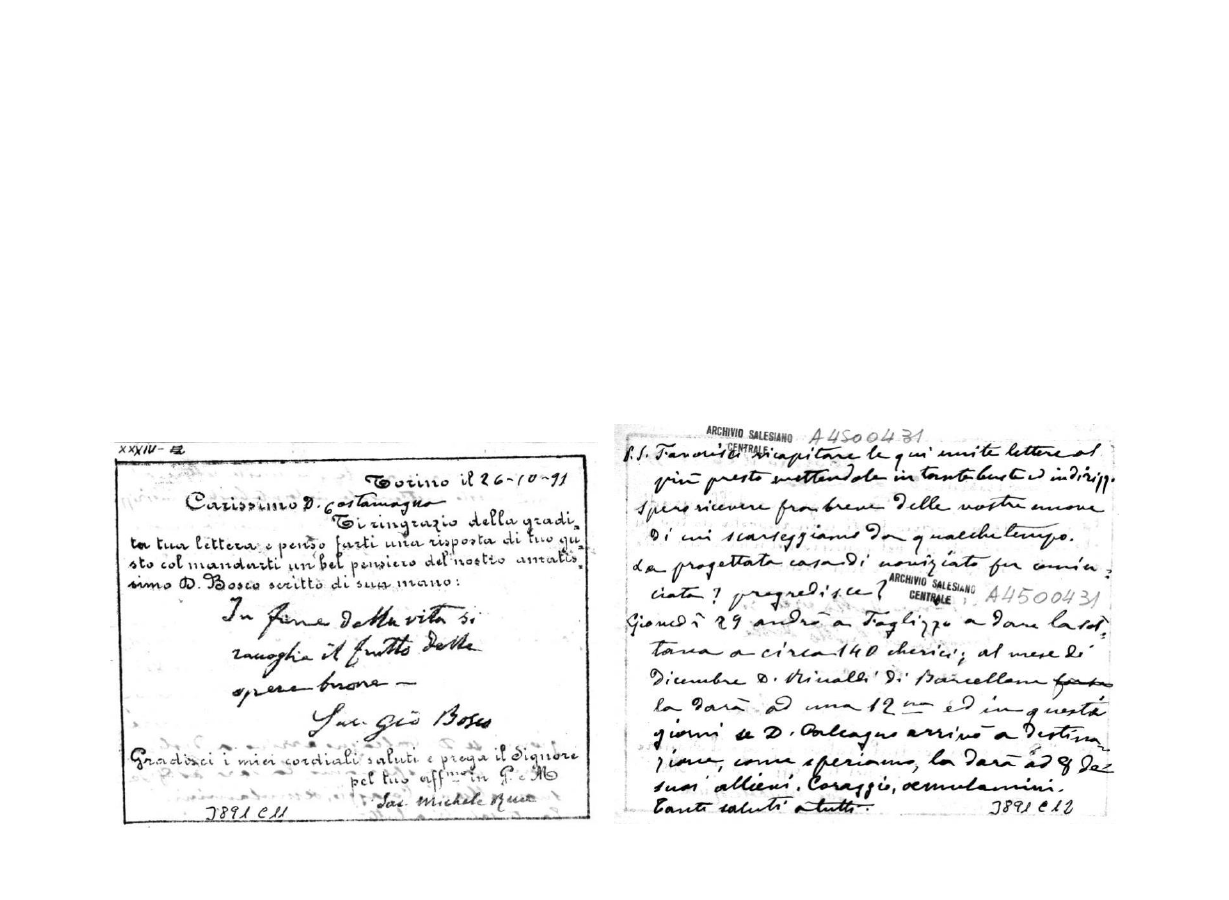 XXXIV-
Torino il 26-10-91
Carissimo D. Costamagna
Ti ringrazio della gradi=
ta tua lettera e penso farti una risposta di tuo gu=
sto col mandarti un bel pensiero del nostro amatis=
simo D. Bosco scritto di sua mano:
In fine della vita si
raccoglie il frutto delle
opere buone —
Sac. Gio Bosco
Gradisci i miei cordiali saluti e prega il Signore
pel tuo aff.mo in G. e M
Sac. Michele Rua
3891 C11
ARCHIVIO SALESIANO
CENTRALE
A4500431
P.S. Favorisci ricapitare le qui unite lettere al
più presto mettendole in tante buste ed indirizz.
Spero ricevere fra breve delle vostre nuove
di cui scarseggiamo da qualche tempo.
La progettata casa di noviziato fu comin=
ciata? progredisce?
ARCHIVIO SALESIANO
CENTRALE
A4500431
Giovedì 29 andrò a Foglizzo a dare la sot=
tana a circa 140 cherici; al mese di
Dicembre D. Rinaldi di Barcellona forse
la darà ad una 12na ed in questi
giorni se D. Calcagno arrivò a destina=
zione, come speriamo, la darà ad 8 de
suoi allievi. Coraggio, aemulamini.
Tanti saluti a tutti.
3891 C12